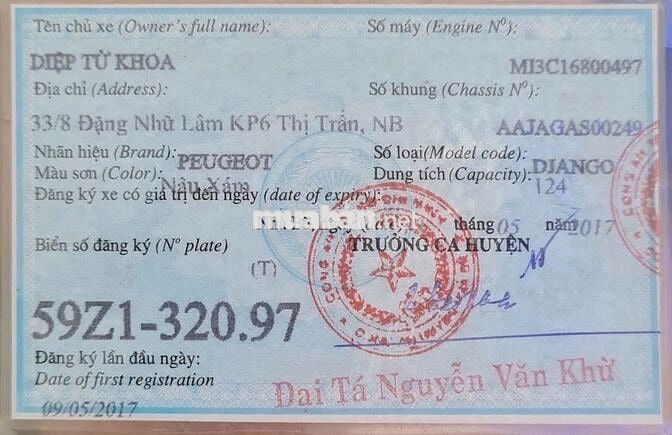 Tên chủ xe (Owner's full name): Số máy (Engine Nº):
DIỆP TỪ KHOA MI3C16800497
Địa chỉ (Address): Số khung (Chassis Nº):
33/8 Đặng Nhữ Lâm KP6 Thị Trấn, NB AAJAGAS00249
Nhãn hiệu (Brand): PEUGEOT Số loại(Model code): DJANGO
Màu sơn (Color): Nâu Xám Dung tích (Capacity): 124
Đăng ký xe có giá trị đến ngày (date of expiry):
muaban.net
tháng 05 năm 2017
Biển số đăng ký (Nº plate) TRƯỞNG CA HUYỆN
(T)
59Z1-320.97
Đăng ký lần đầu ngày:
Date of first registration
Đại Tá Nguyễn Văn Khừ
09/05/2017